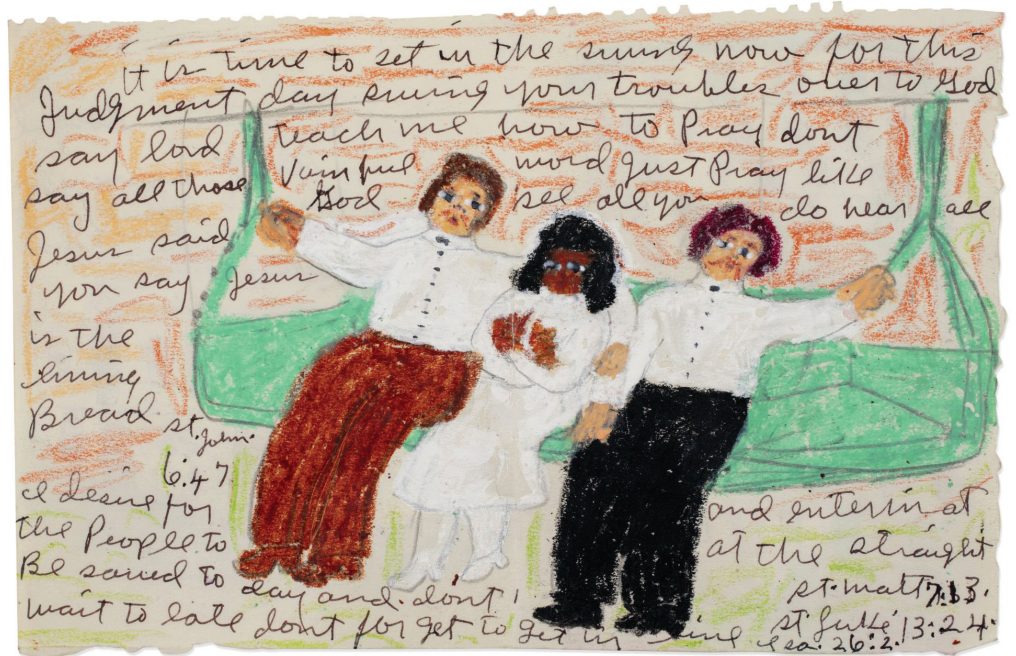 it is time to set in the swing now for this
Judgment day swing your troubles over to God
say lord teach me how to Pray dont
say all those Vain ful word Just Pray like
Jesus said God see all you do hear all
you say Jesus
is the
living
Bread
st. John.
6:47
I desire for
the People to
Be saved to day and dont
wait to late dont for get to get in line
and enter in at
at the straight
st. matt 7:13.
st. Luke 13:24.
isa. 26:2.